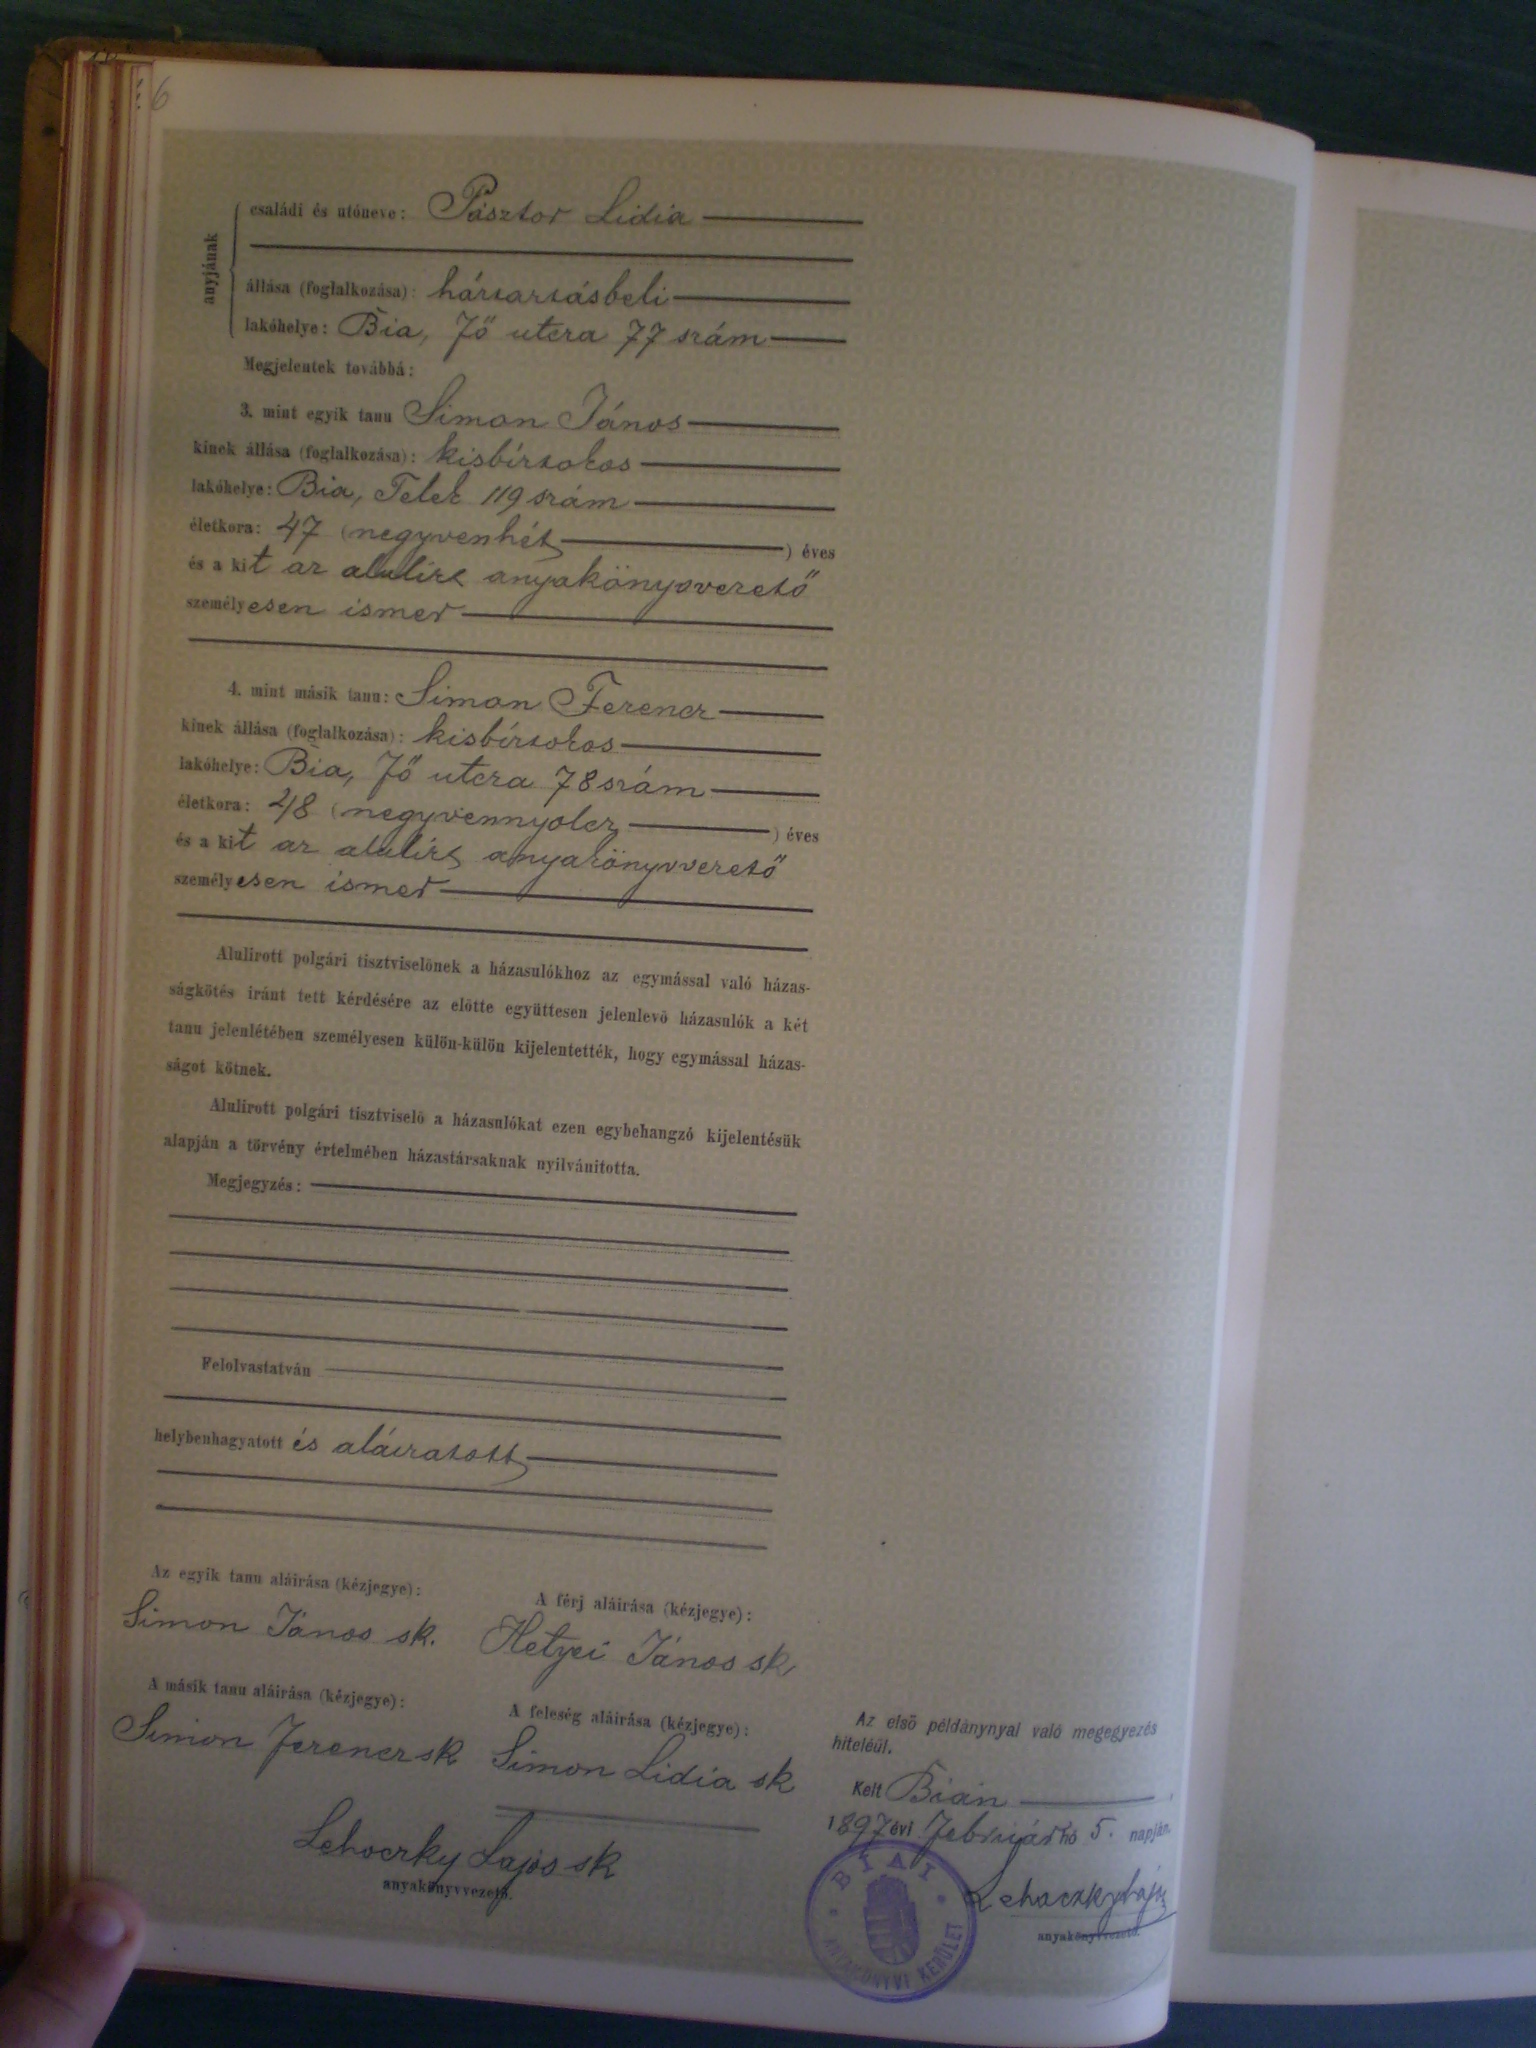 6
anyjának
családi és utóneve: Pásztor Lidia
állása (foglalkozása): háztartásbeli
lakóhelye: Bia, Fő utcza 77 szám
Megjelentek továbbá:
3. mint egyik tanu Simon János
kinek állása (foglalkozása): kisbirtokos
lakóhelye: Bia, Telek 119 szám
életkora: 47 (negyvenhét) éves
és a kit az alulirt anyakönyvvezető
személyesen ismer
4. mint másik tanu: Simon Ferencz
kinek állása (foglalkozása): kisbirtokos
lakóhelye: Bia, Fő utcza 78 szám
életkora: 48 (negyvennyolcz) éves
és a kit az alulirt anyakönyvvezető
személyesen ismer
Alulirott polgári tisztviselőnek a házasulókhoz az egymással való házas-
ságkötés iránt tett kérdésére az előtte együttesen jelenlevő házasulók a két
tanu jelenlétében személyesen külön-külön kijelentették, hogy egymással házas-
ságot kötnek.
Alulirott polgári tisztviselő a házasulókat ezen egybehangzó kijelentésük
alapján a törvény értelmében házastársaknak nyilvánitotta.
Megjegyzés:
Felolvastatván
helybenhagyatott és aláiratott
Az egyik tanu aláirása (kézjegye):
A férj aláirása (kézjegye):
Simon János sk.
Hetyei János sk
A másik tanu aláirása (kézjegye):
A feleség aláirása (kézjegye):
Simon Ferencz sk
Simon Lidia sk
Lehoczky Lajos sk
anyakönyvvezető.
Az első példánynyal való megegyezés
hiteléül.
Kelt Bián
1897 évi február hó 5. napján.
Lehoczky Lajos
anyakönyvvezető.
BIAI
ANYAKÖNYVI KERÜLET